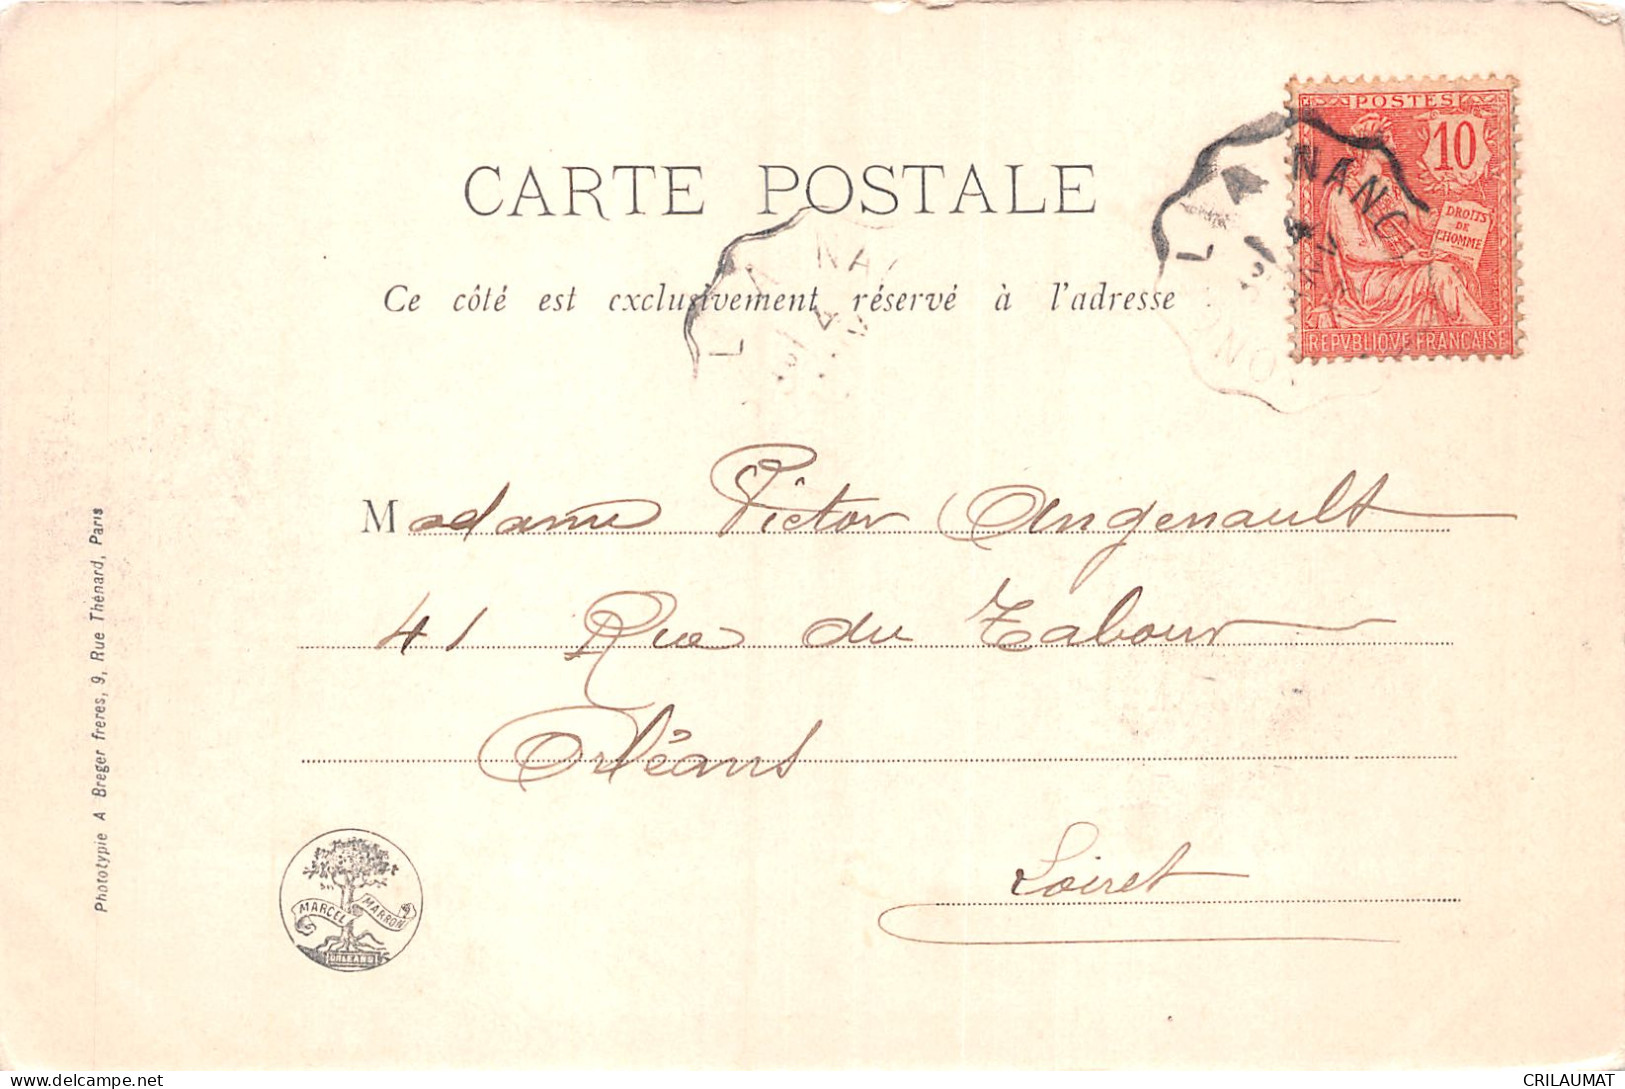 POSTES
10
DROITS
DE
L'HOMME
REPVBLIQVE FRANÇAISE
CARTE POSTALE
Ce côté est exclusivement réservé à l'adresse
Madame Victor Angenault
41 Rue du Tabour
Orléans
Loiret
Phototypie A Breger freres, 9, Rue Thénard, Paris
MARCEL MARRON
ORLEANS
CRILAUMAT